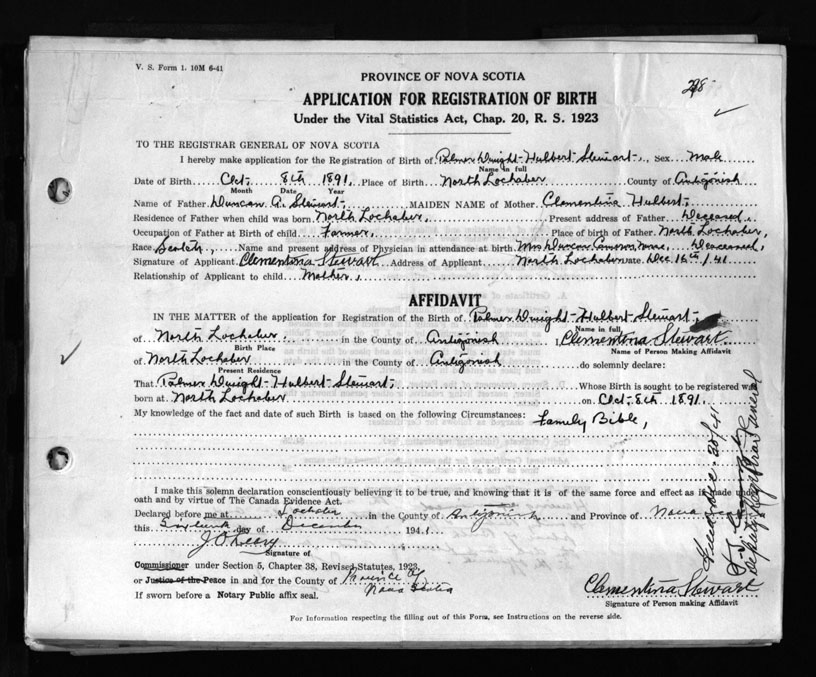 V. S. Form 1. 10M 6-41
PROVINCE OF NOVA SCOTIA
APPLICATION FOR REGISTRATION OF BIRTH
Under the Vital Statistics Act, Chap. 20, R. S. 1923
TO THE REGISTRAR GENERAL OF NOVA SCOTIA
I hereby make application for the Registration of Birth of Palmer Dwight Hulbert Stewart, Sex Male
Name in full
Date of Birth Oct. 8th 1891, Place of Birth North Lochaber County of Antigonish
Month Date Year
Name of Father Duncan A. Stewart. MAIDEN NAME of Mother Clementina Hulbert.
Residence of Father when child was born North Lochaber, Present address of Father Deceased.
Occupation of Father at Birth of child Farmer, Place of birth of Father North Lochaber,
Race Scotch, Name and present address of Physician in attendance at birth Mrs Duncan Deceased,
Signature of Applicant Clementina Stewart Address of Applicant North Lochaber Date Dec 16th/41
Relationship of Applicant to child Mother,
AFFIDAVIT
IN THE MATTER of the application for Registration of the Birth of Palmer Dwight Hulbert Stewart,
Name in full
of North Lochaber, in the County of Antigonish I, Clementina Stewart
Birth Place Name of Person Making Affidavit
of North Lochaber in the County of Antigonish do solemnly declare:
Present Residence
That Palmer Dwight Hulbert Stewart, Whose Birth is sought to be registered was
born at North Lochaber on Oct 8th 1891.
My knowledge of the fact and date of such Birth is based on the following Circumstances: Family Bible,
I make this solemn declaration conscientiously believing it to be true, and knowing that it is of the same force and effect as if made upon
oath and by virtue of The Canada Evidence Act.
Declared before me at Lochaber in the County of Antigonish and Province of Nova
this Sixteenth day of December 1941
Signature of
Commissioner under Section 5, Chapter 38, Revised Statutes, 1923,
or Justice of the Peace in and for the County of Province of
Nova Scotia
If sworn before a Notary Public affix seal.
Clementina Stewart
Signature of Person making Affidavit
Deputy Registrar General
For Information respecting the filling out of this Form, see Instructions on the reverse side.